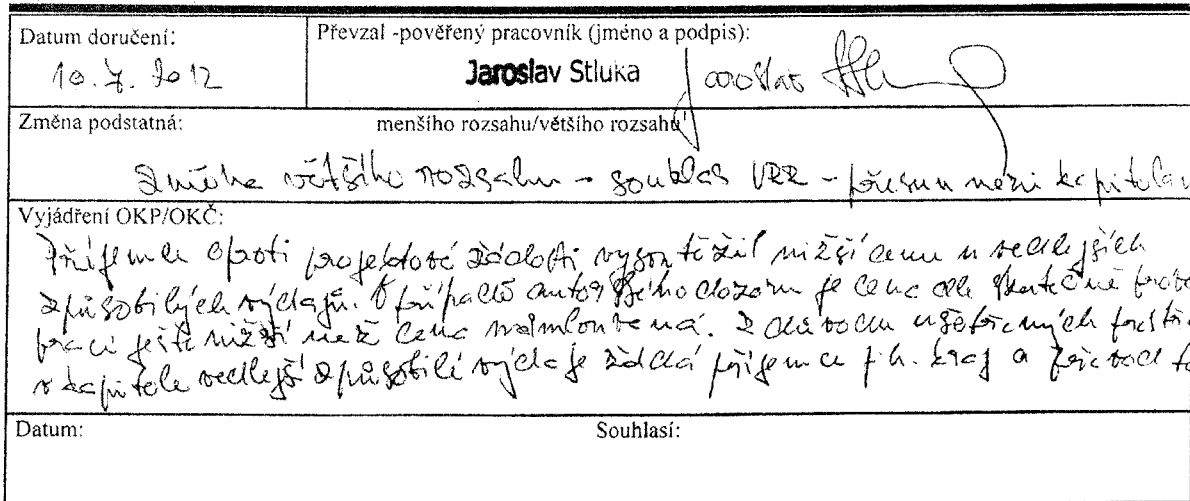 Datum doručení:
Převzal -pověřený pracovník (jméno a podpis):
10. 7. 2012
Jaroslav Stluka
Jaroslav
Změna podstatná:
menšího rozsahu/většího rozsahu
změna většího rozsahu - souhlas VRR - přesun mezi kapitolami
Vyjádření OKP/OKČ:
Příjemce oproti projektové žádosti vysoutěžil nižší cenu u vedlejších
způsobilých výdajů. V případě autorského dozoru je cena dle skutečně
prací ještě nižší než cena nasmlouvaná. Z důvodu ušetřených
v kapitole vedlejší způsobilé výdaje žádá příjemce p.h. kraj a převod
Datum:
Souhlasí: